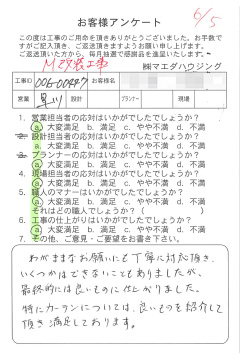 6/5
お客様アンケート
この度は工事のご用命を頂きありがとうございました。お手数で
すがご記入頂き、ご返送頂きますようお願い申し上げます。
ご返送頂いた方から、毎月抽選で感謝品を進呈いたします。
M 改装工事 ㈱マエダハウジング
工事ID お客様名
営業 設計 プランナー 現場
1. 営業担当者の応対はいかがでしたでしょうか?
a. 大変満足 b. 満足 c. やや不満 d. 不満
2. 設計担当者の応対はいかがでしたでしょうか?
a. 大変満足 b. 満足 c. やや不満 d. 不満
3. プランナーの応対はいかがでしたでしょうか?
a. 大変満足 b. 満足 c. やや不満 d. 不満
4. 現場担当者の応対はいかがでしたでしょうか?
a. 大変満足 b. 満足 c. やや不満 d. 不満
5. 職人のマナーはいかがでしたでしょうか?
a. 大変満足 b. 満足 c. やや不満 d. 不満
それはどの職人でしょうか?( )
6. 工事の仕上がりはいかがでしたでしょうか?
a. 大変満足 b. 満足 c. やや不満 d. 不満
7. その他、ご意見・ご要望をお書き下さい。
わがままなお願いにも丁寧に対応頂き、
いくつかはできないこともありましたが、
最終的には良いものに仕上がりました。
特にカーテンについては、良いものを紹介して
頂き満足しております。